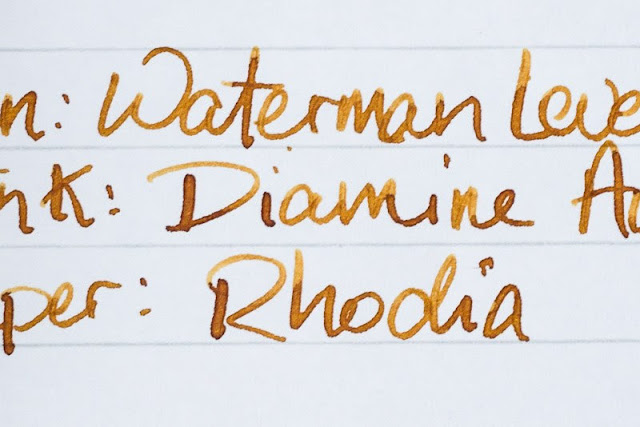 n: Waterman Leve
nk: Diamine A
per: Rhodia